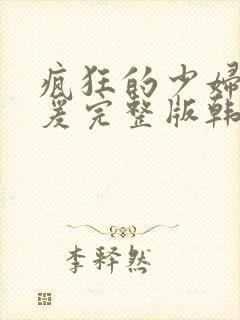 疯狂的少婦
爰完整版韩
李释然